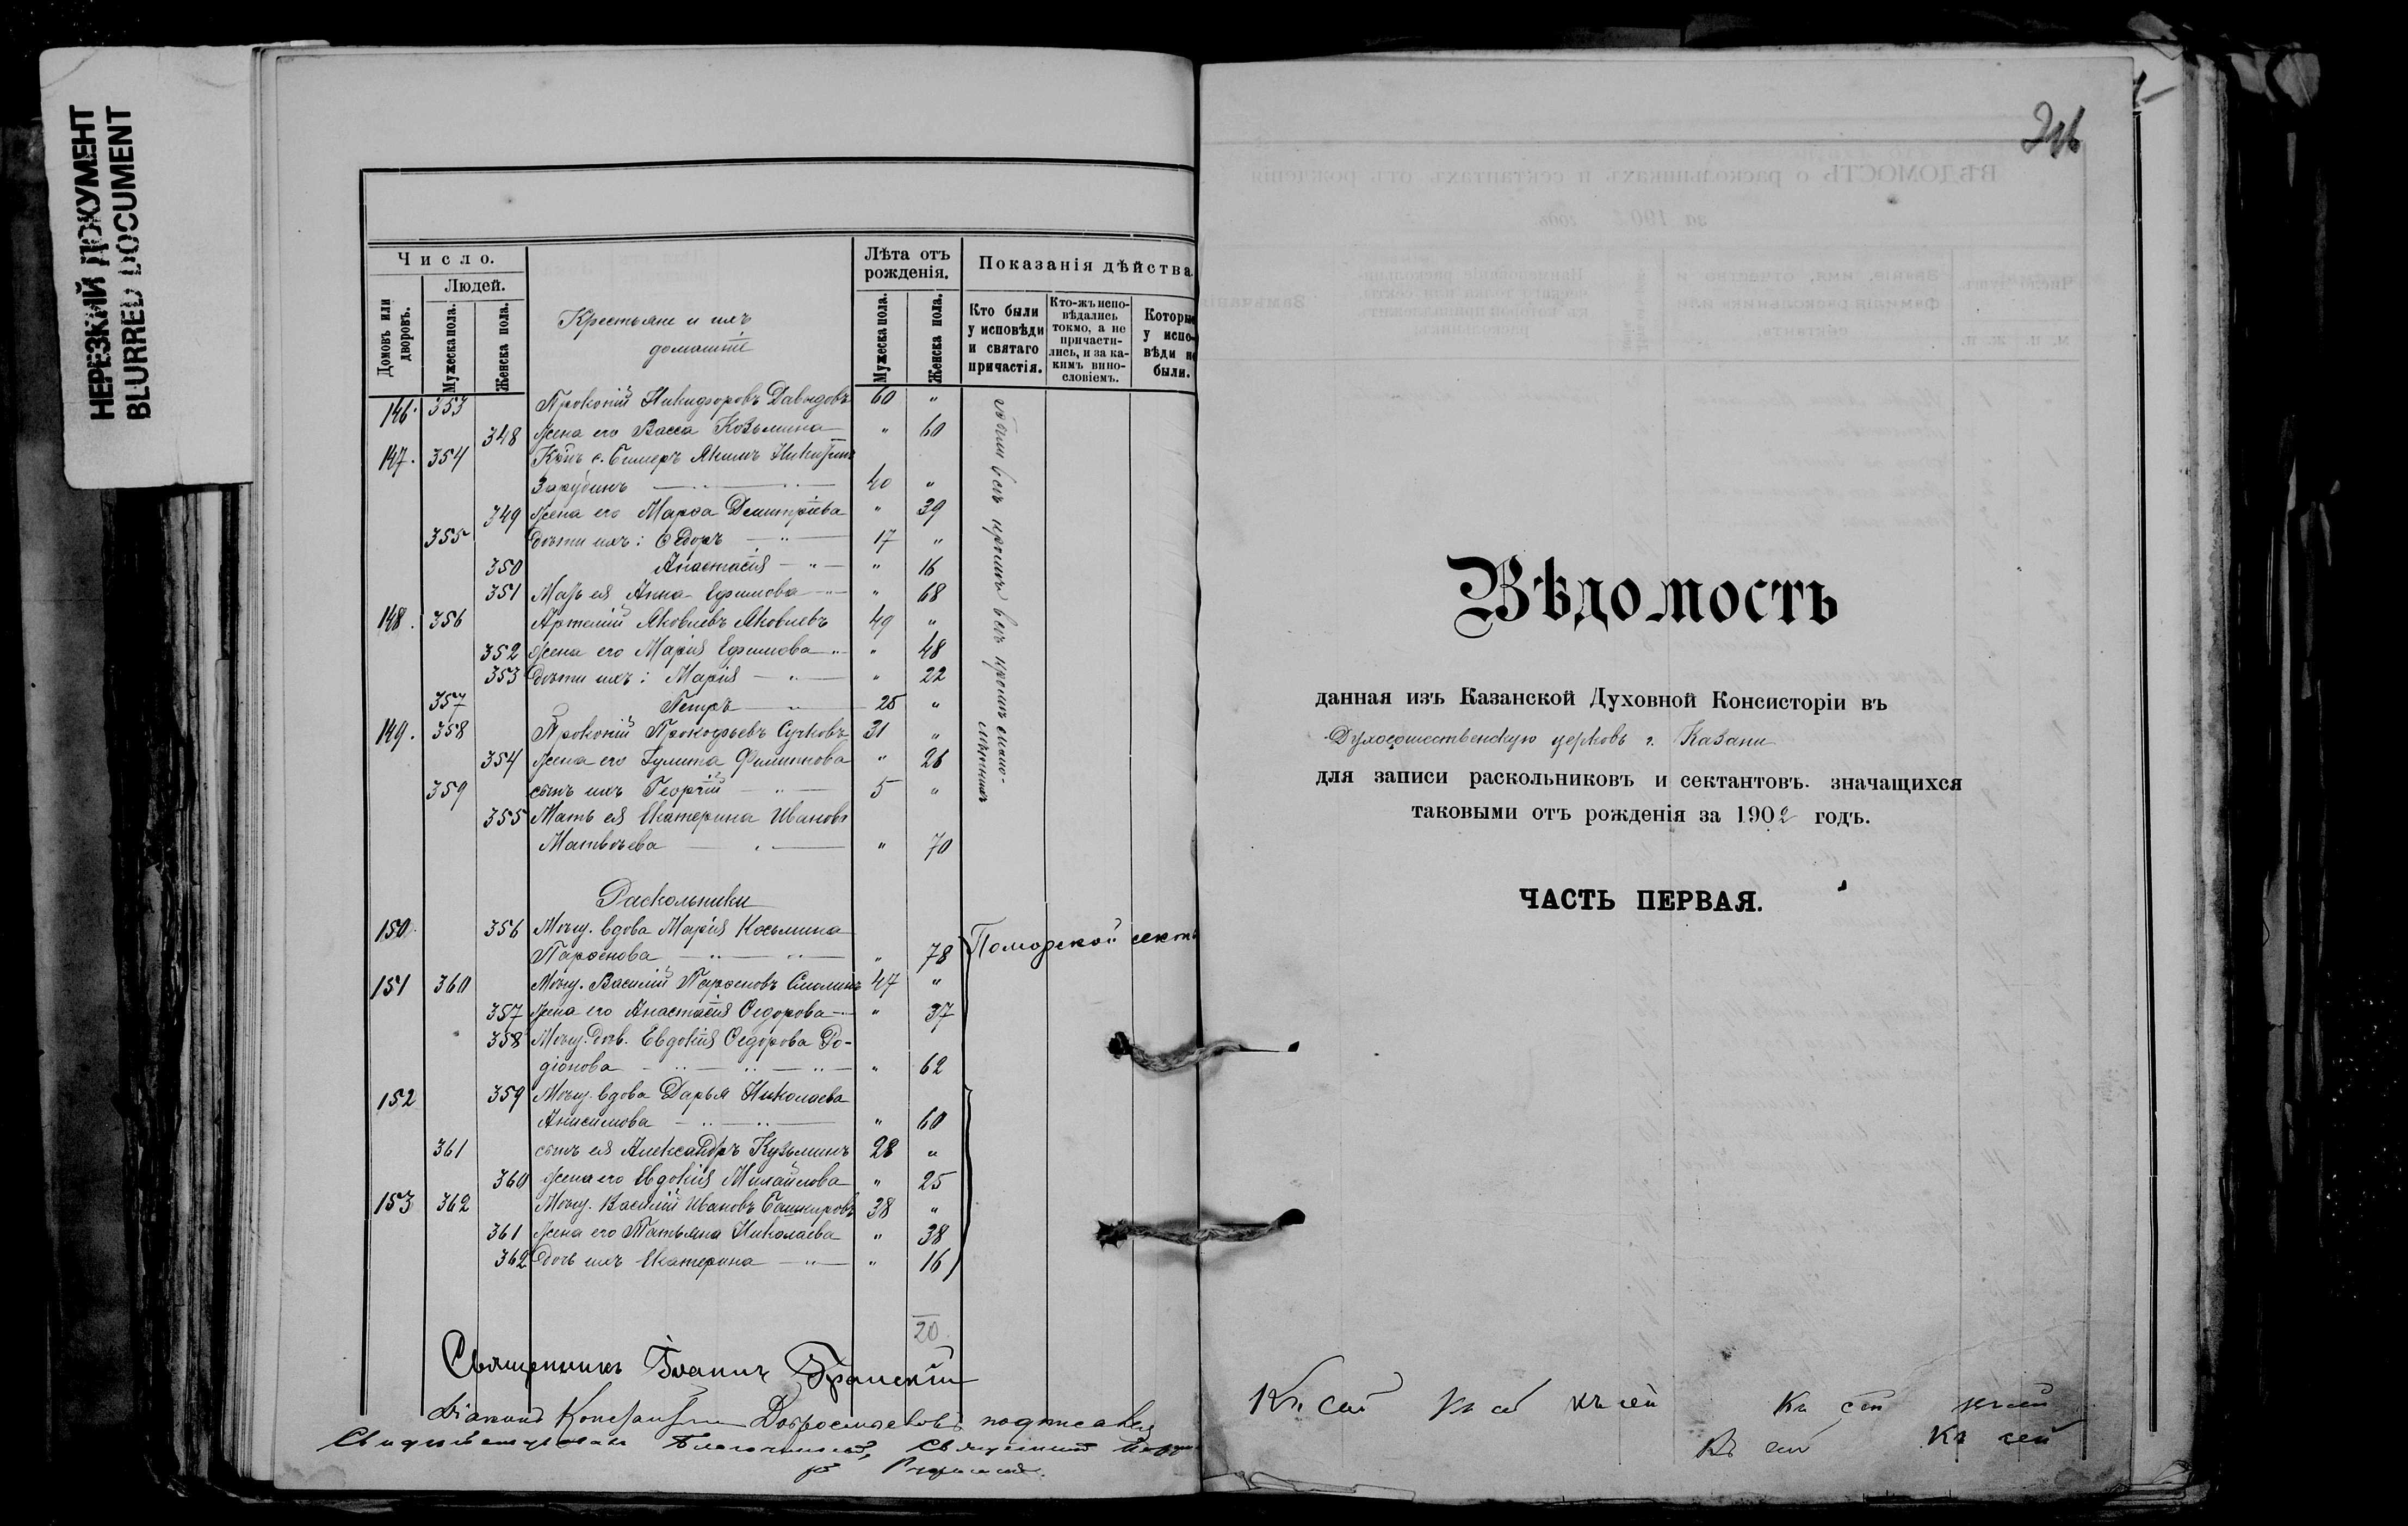 НЕРЕЗКИЙ ДОКУМЕНТ
BLURRED DOCUMENT
Число.
Людей.
Домовъ или дворовъ.
Мужеска пола.
Женска пола.
Крестьяне и ихъ
домашніе
Лѣта отъ рожденія.
Мужеска пола.
Женска пола.
Показанія дѣйства
Кто были у исповѣди и святаго причастія.
Кто-жъ неповѣдались токмо, а не причастились, и за какимъ винословіемъ.
Которые у исповѣди не были.
146. 353 Прокопій Никифоровъ Давыдовъ 60 "
348 Жена его Васса Козьмина " 60
147. 354 Кр-нъ с. Бимеръ Якимъ Никитинъ
Зарубинъ 40 "
349 Жена его Марѳа Димитріева " 39
355 Дѣти ихъ: Ѳедоръ 17 "
350 Анастасія " 16
351 Мать ея Анна Ефимова " 68
148. 356 Артемій Яковлевъ Яковлевъ 49 "
352 Жена его Марія Ефимова " 48
353 Дѣти ихъ: Марія " 22
357 Петръ 25 "
149. 358 Прокопій Прокофьевъ Сучковъ 31 "
354 Жена его Іулита Филиппова " 26
359 сынъ ихъ Георгій 5 "
355 Мать ея Екатерина Иванова
Матвѣева " 70
Раскольники
150. 356 Мѣщ. вдова Марія Косьмина
Парѳенова " 78
Поморской секты
151 360 Мѣщ. Василій Парѳеновъ Смолинъ 47 "
357 Жена его Анастасія Ѳедорова " 37
358 Мѣщ. дѣв. Евдокія Ѳедорова Ро-
діонова " 62
152 359 Мѣщ. вдова Дарья Николаева
Анисимова " 60
361 сынъ ея Александръ Кузьминъ 28 "
360 Жена его Евдокія Михайлова " 25
153 362 Мѣщ. Василій Ивановъ Башкировъ 38 "
361 Жена его Татьяна Николаева " 38
362 Дочь ихъ Екатерина " 16
20
Священникъ Іоаннъ
Діаконъ подписался
Благочинный, Священникъ
Вѣдомость
данная изъ Казанской Духовной Консисторіи въ
Духосошественскую церковь г. Казани
для записи раскольниковъ и сектантовъ. значащихся
таковыми отъ рожденія за 1902 годъ.
ЧАСТЬ ПЕРВАЯ.
Къ сей